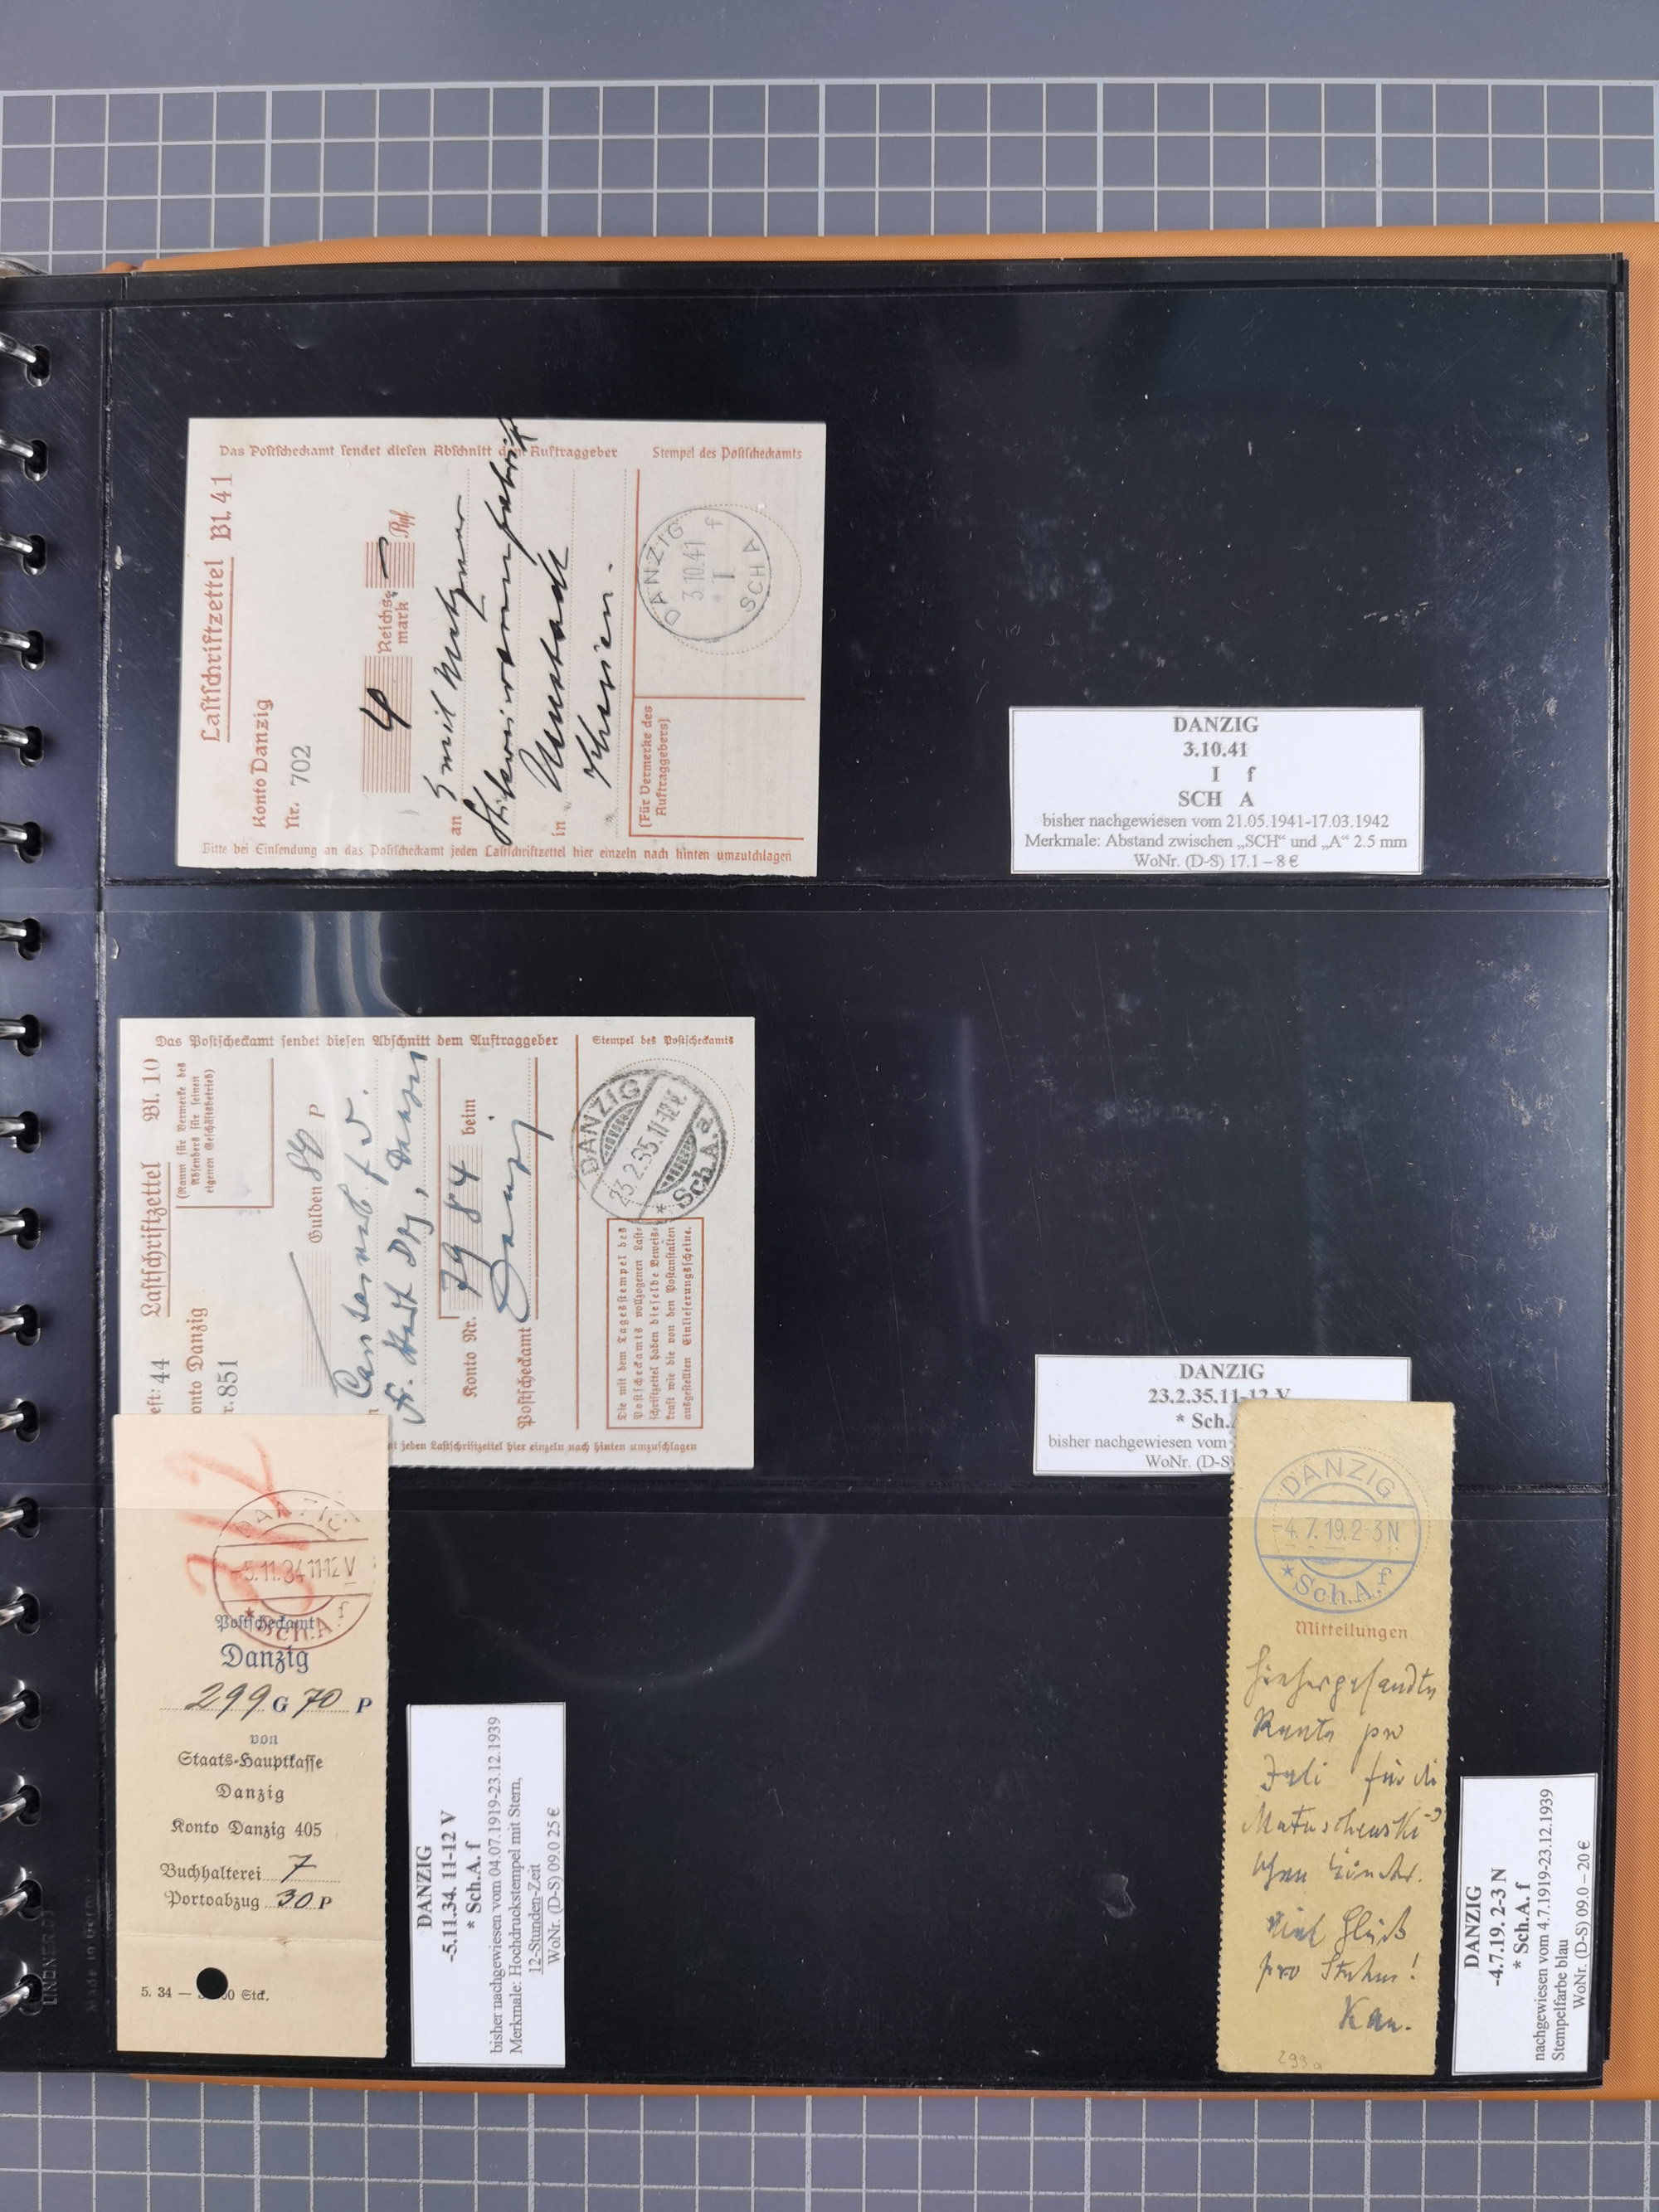 Das Postscheckamt sendet diesen Abschnitt dem Auftraggeber
Stempel des Postscheckamts
Lastschriftzettel Bl. 41
Konto Danzig
Nr. 702
4 Reichs-
mark — Rpf
an Emil
in Neustadt
(Für Vermerke des
Auftraggebers)
DANZIG
3.10.41
I f
SCH A
Bitte bei Einsendung an das Postscheckamt jeden Lastschriftzettel hier einzeln nach hinten umzuschlagen
DANZIG
3.10.41
I f
SCH A
bisher nachgewiesen vom 21.05.1941-17.03.1942
Merkmale: Abstand zwischen „SCH“ und „A“ 2.5 mm
WoNr. (D-S) 17.1 – 8 €
Das Postscheckamt sendet diesen Abschnitt dem Auftraggeber
Stempel des Postscheckamts
eft: 44 Lastschriftzettel Bl. 10
onto Danzig
r. 851
(Raum für Vermerke des
Absenders für seinen
eigenen Geschäftsbetrieb)
Gulden P
Konto Nr. 7984 beim
Postscheckamt Danzig
Die mit dem Tagesstempel des
Postscheckamts vollzogenen Last-
schriftzettel haben dieselbe Beweis-
kraft wie die von den Postanstalten
ausgestellten Einlieferungsscheine.
DANZIG
23.2.35.11-12 V.
* Sch.A. a
t jeden Lastschriftzettel hier einzeln nach hinten umzuschlagen
DANZIG
23.2.35.11-12 V
* Sch.
bisher nachgewiesen vom
WoNr. (D-S)
DANZIG
-5.11.34 11-12 V
* Sch.A. f
Postscheckamt
Danzig
299 G 70 P
von
Staats-Hauptkasse
Danzig
Konto Danzig 405
Buchhalterei 7
Portoabzug 30 P
5. 34 — 00 Stck.
DANZIG
-5.11.34. 11-12 V
* Sch.A. f
bisher nachgewiesen vom 04.07.1919-23.12.1939
Merkmale: Hochdruckstempel mit Stern,
12-Stunden-Zeit
WoNr. (D-S) 09.0 25 €
DANZIG
-4.7.19.2-3 N
* Sch.A. f
Mitteilungen
pro
Juli für die
viel Glück
pro
299a
DANZIG
-4.7.19. 2-3 N
* Sch.A. f
nachgewiesen vom 4.7.1919-23.12.1939
Stempelfarbe blau
WoNr. (D-S) 09.0 – 20 €
LINDNER